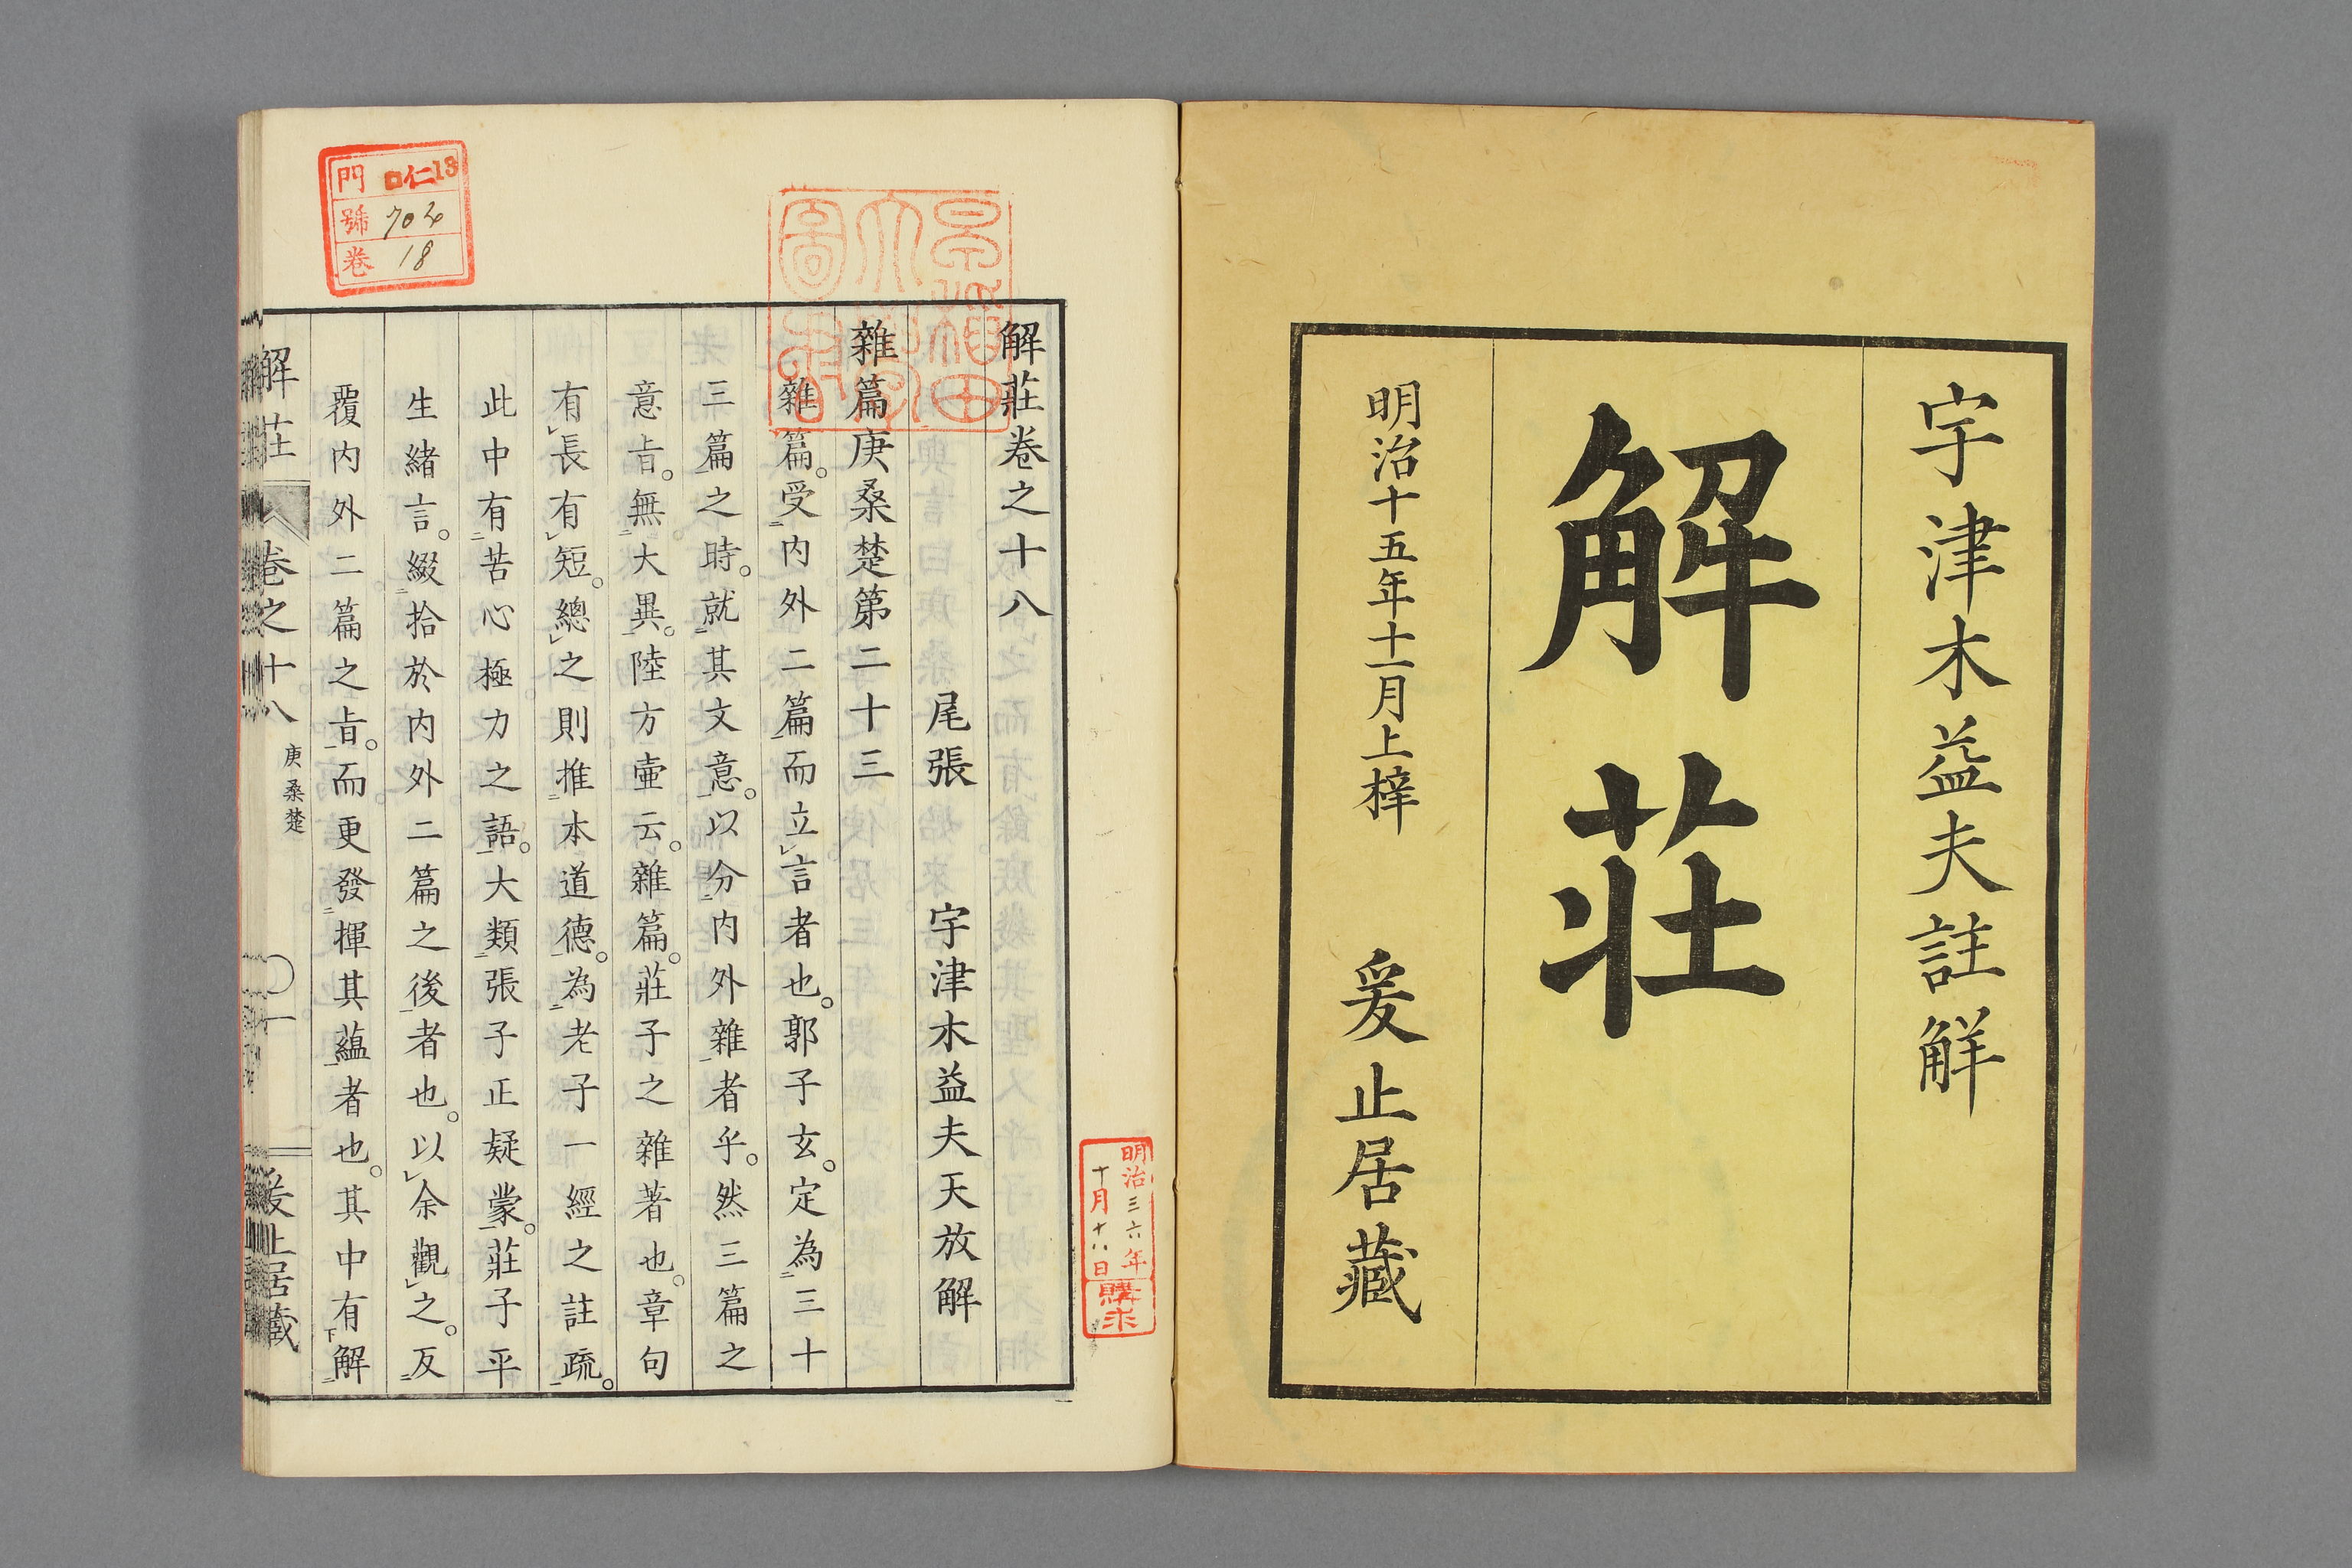 宇津木益夫註解
解莊
明治十五年十一月上梓
爰止居藏
明治三六年
十月十八日
購求
解莊卷之十八
尾張 宇津木益夫天放解
雜篇庚桑楚第二十三
雜篇。受内外二篇而立言者也。郭子玄。定為三十
三篇之時。就其文意。以分内外雜者乎。然三篇之
意旨。無大異。陸方壷云。雜篇。莊子之雜著也。章句
有長有短。總之則推本道德。為老子一經之註疏。
此中有苦心極力之語。大類張子正疑蒙。莊子平
生緒言。綴拾於内外二篇之後者也。以余觀之。反
覆内外二篇之旨。而更發揮其蘊者也。其中有解
門 仁13
號 704
卷 18
解莊 卷之十八 庚桑楚 一 爰止居藏